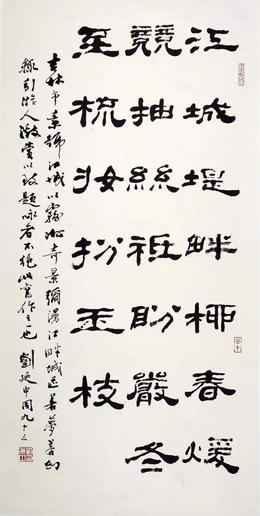 江城堤畔柳春煖
競抽絲祗盼嚴冬
至梳妝扮玉枝
吉林市素號江城以霧淞奇景彌漫江畔城區若夢若幻
引游人激賞以致題咏者不絕此舊作之一也 劉迺中周九十三